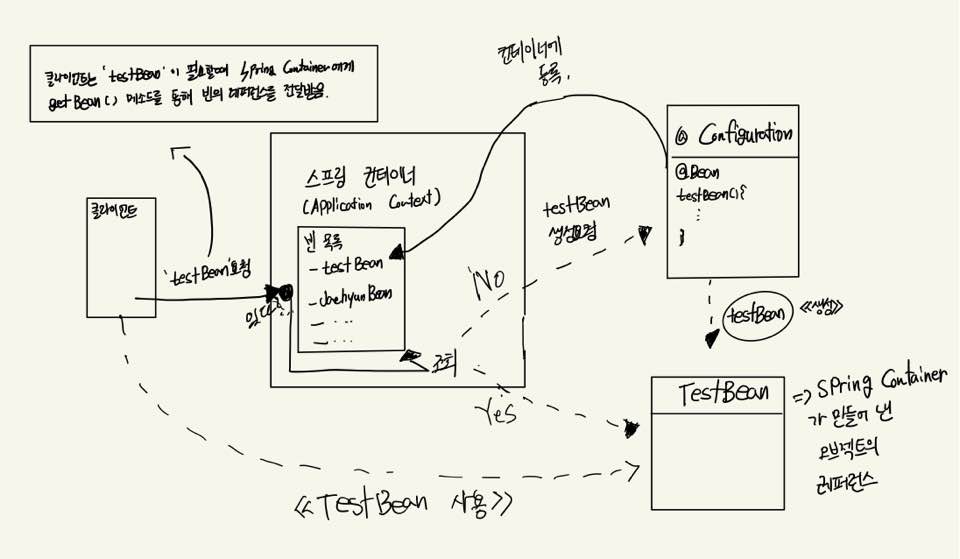 클라이언트는 'testBean'이 필요할때 Spring Container에게
getBean() 메소드를 통해 빈의 레퍼런스를 전달받음.
컨테이너에
등록.
@ Configuration
@Bean
testBean(){
⋮
}
스프링 컨테이너
(Application Context)
testBean
생성요청
클라이언트
빈 목록
- testBean
- JaehyunBean
- ....
- ....
'testBean'요청
NO
조회
Yes
testBean
<<생성>>
TestBean
=> Spring Container
가 만들어 낸
오브젝트의
레퍼런스
<<TestBean 사용>>